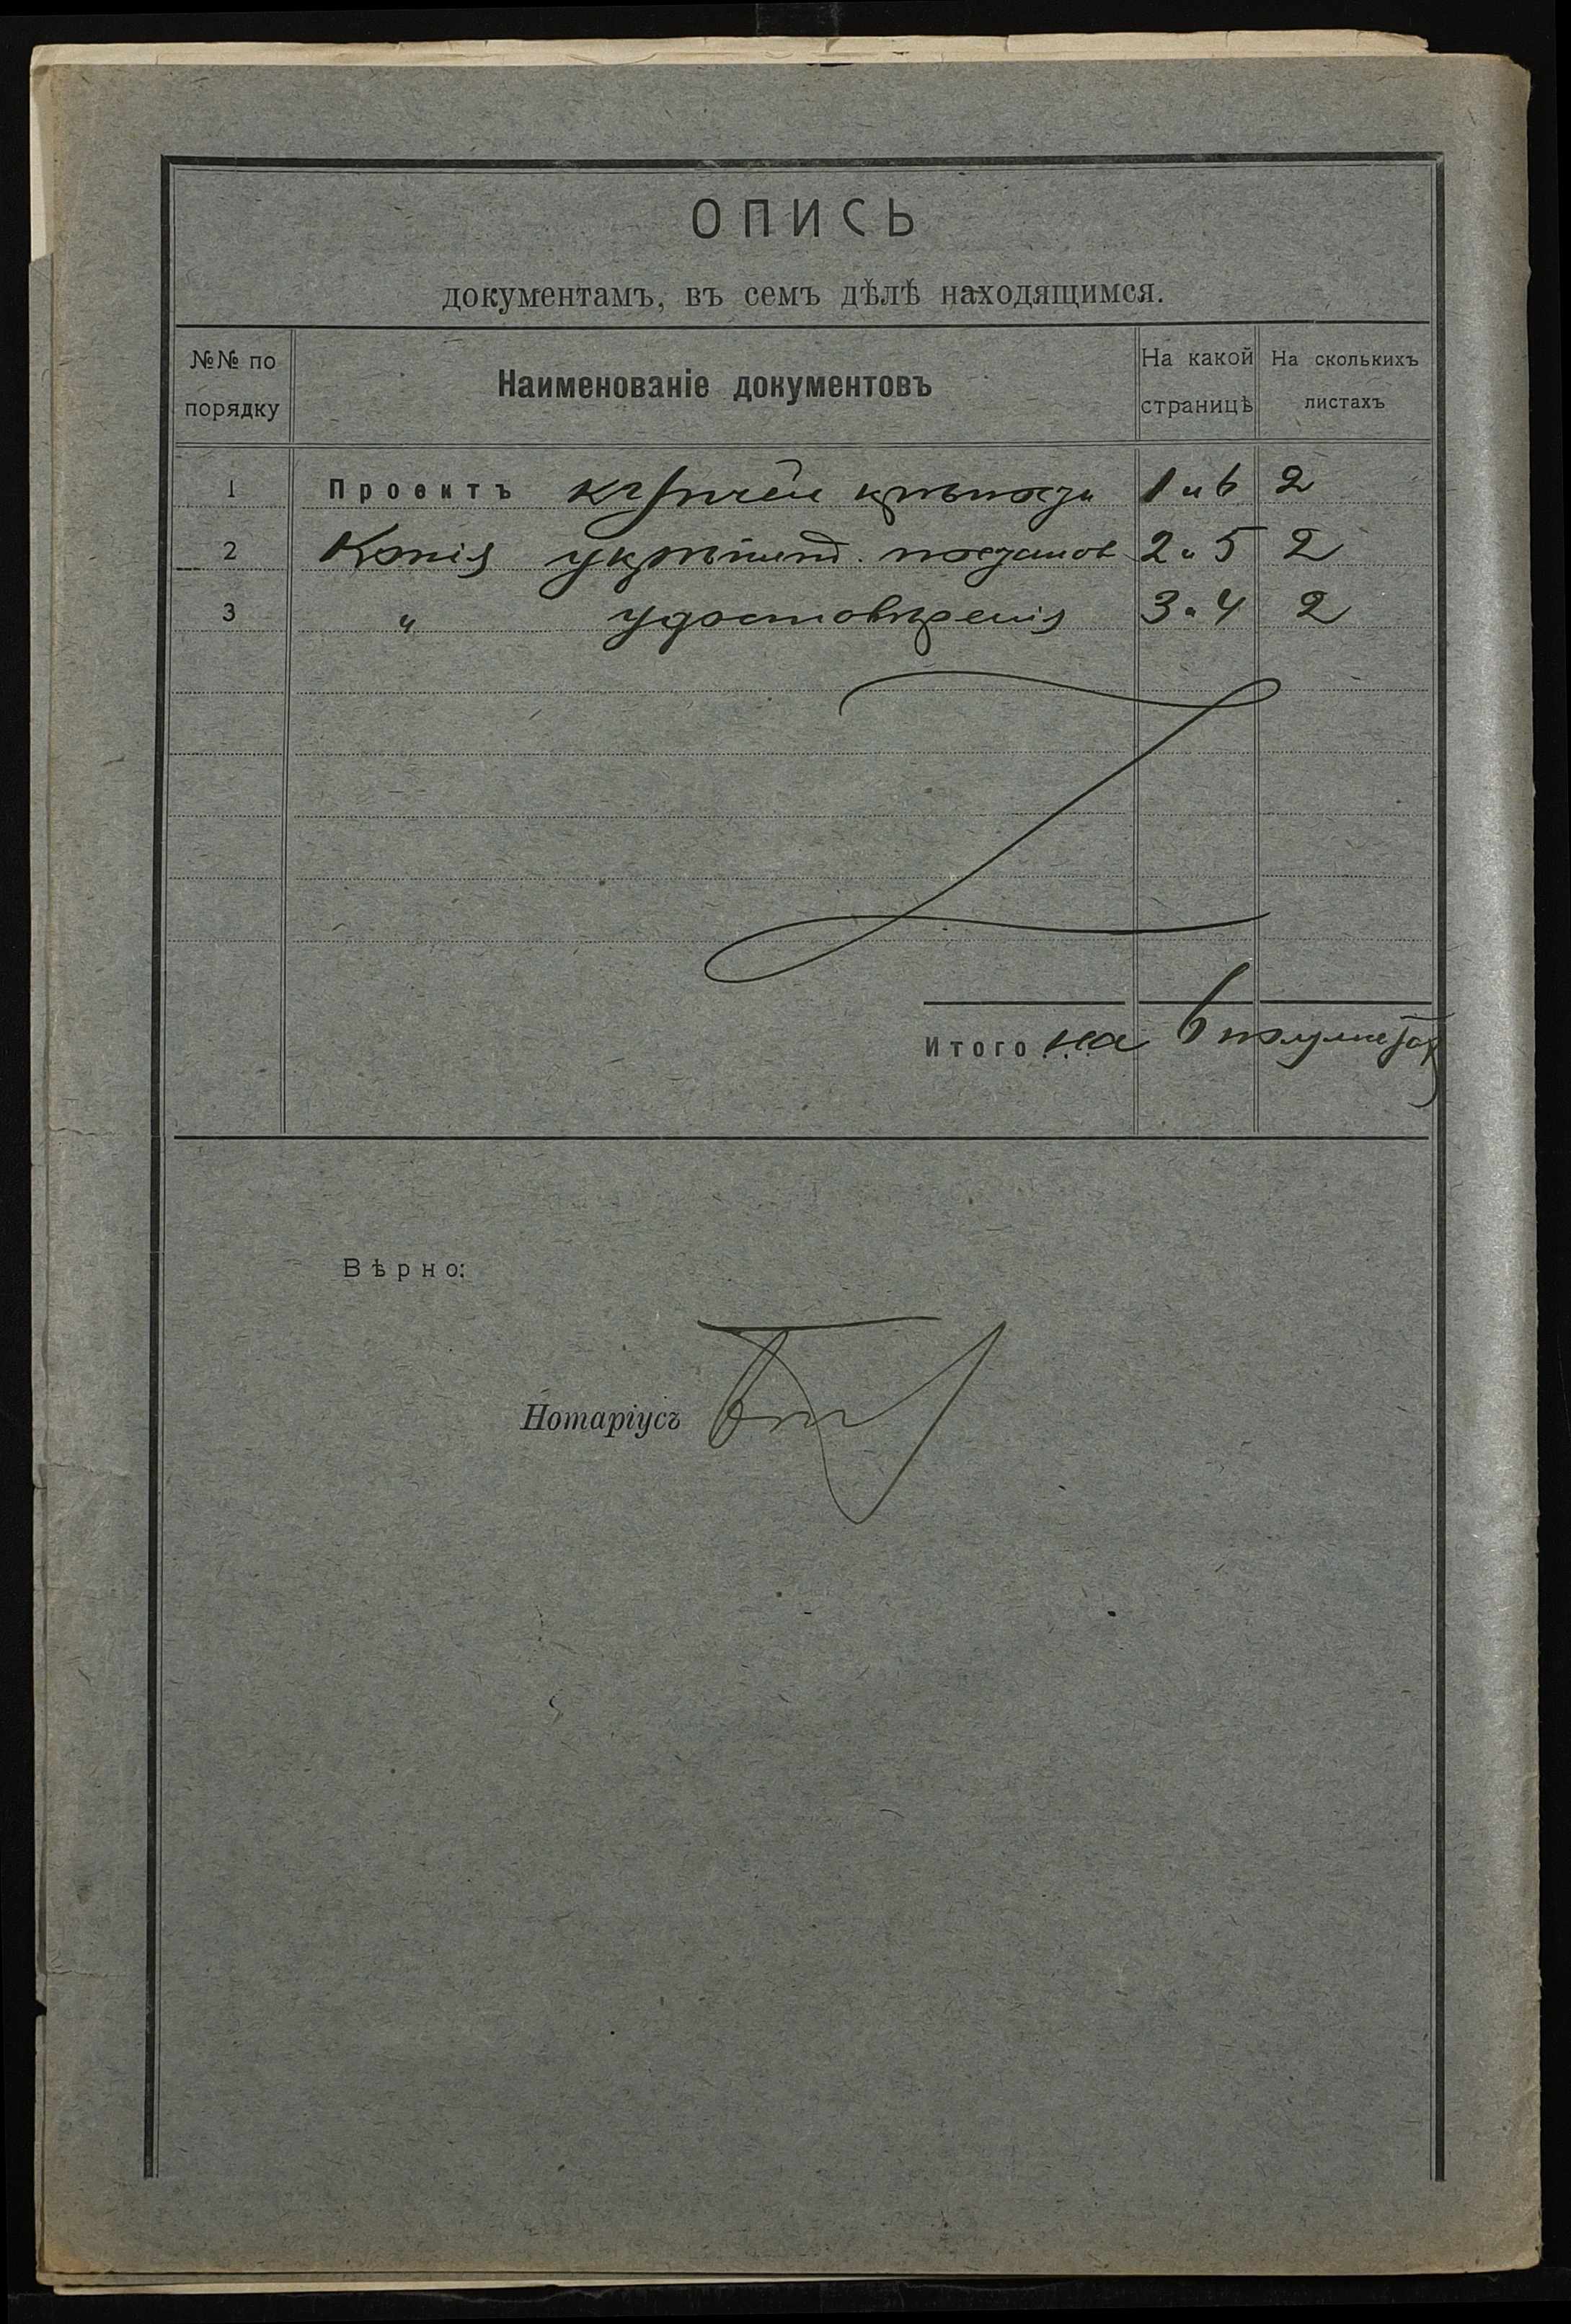 ОПИСЬ
документамъ, въ семъ дѣлѣ находящимся.
№№ по порядку
Наименованіе документовъ
На какой страницѣ
На сколькихъ листахъ
1 Проектъ купчей крѣпости 1 и 6 2
2 Копія укрѣпит. постанов 2 и 5 2
3 " удостовѣренія 3 и 4 2
Итого на 6 полулистах
Вѣрно:
Нотаріусъ